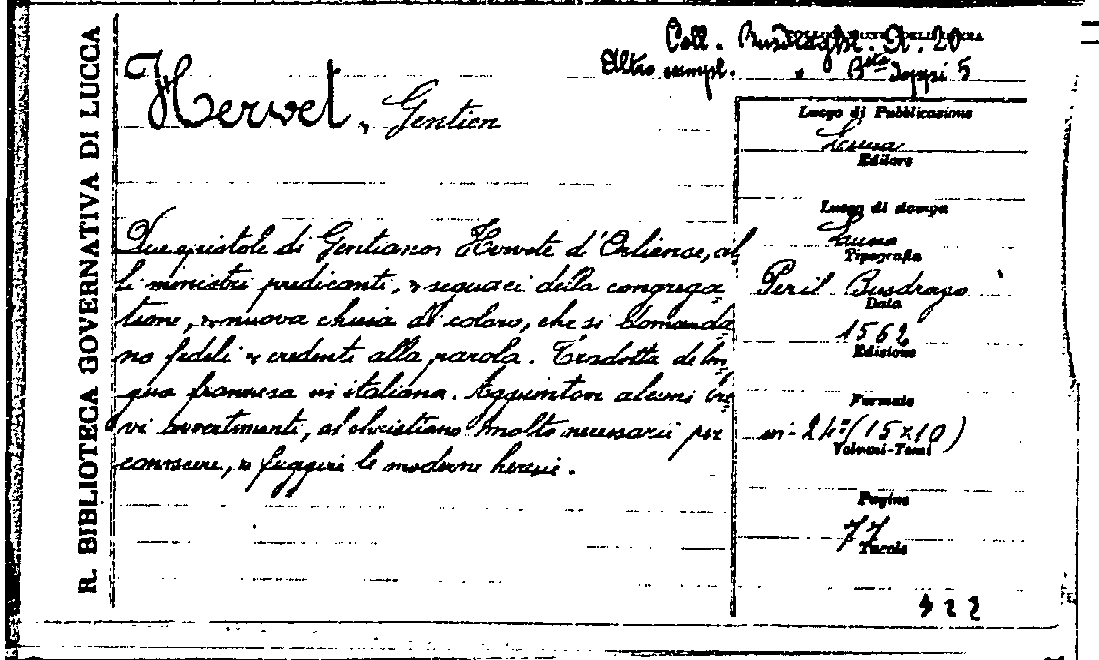 R. BIBLIOTECA GOVERNATIVA DI LUCCA
Coll. Busdraghi. A. 20
Altro esempl. " Bta Joppi 5
Hervet, Gentien
Due epistole di Gentianor Hervete d'Orliense, al
li ministri predicanti, & seguaci della congrega=
tione, & nuova chiesa di coloro, che si domanda=
no fedeli & credenti alla parola. Tradotta de lin=
gua francesa in italiana. Aggiuntovi alcuni bre=
vi avertimenti, al christiano molto necessarii per
conoscere, & fuggire le moderne heresie.
Luogo di Pubblicazione
Lucca
Editore
Luogo di stampa
Lucca
Tipografia
Per il Busdrago
Data
1562
Edizione
Formato
in-24° (15x10)
Volumi-Tomi
Pagine
77
Tavole
422